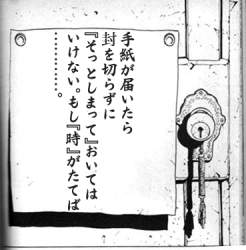 手紙が届いたら
封を切らずに
『そっとしまって』おいては
いけない。もし『時』がたてば
……………。